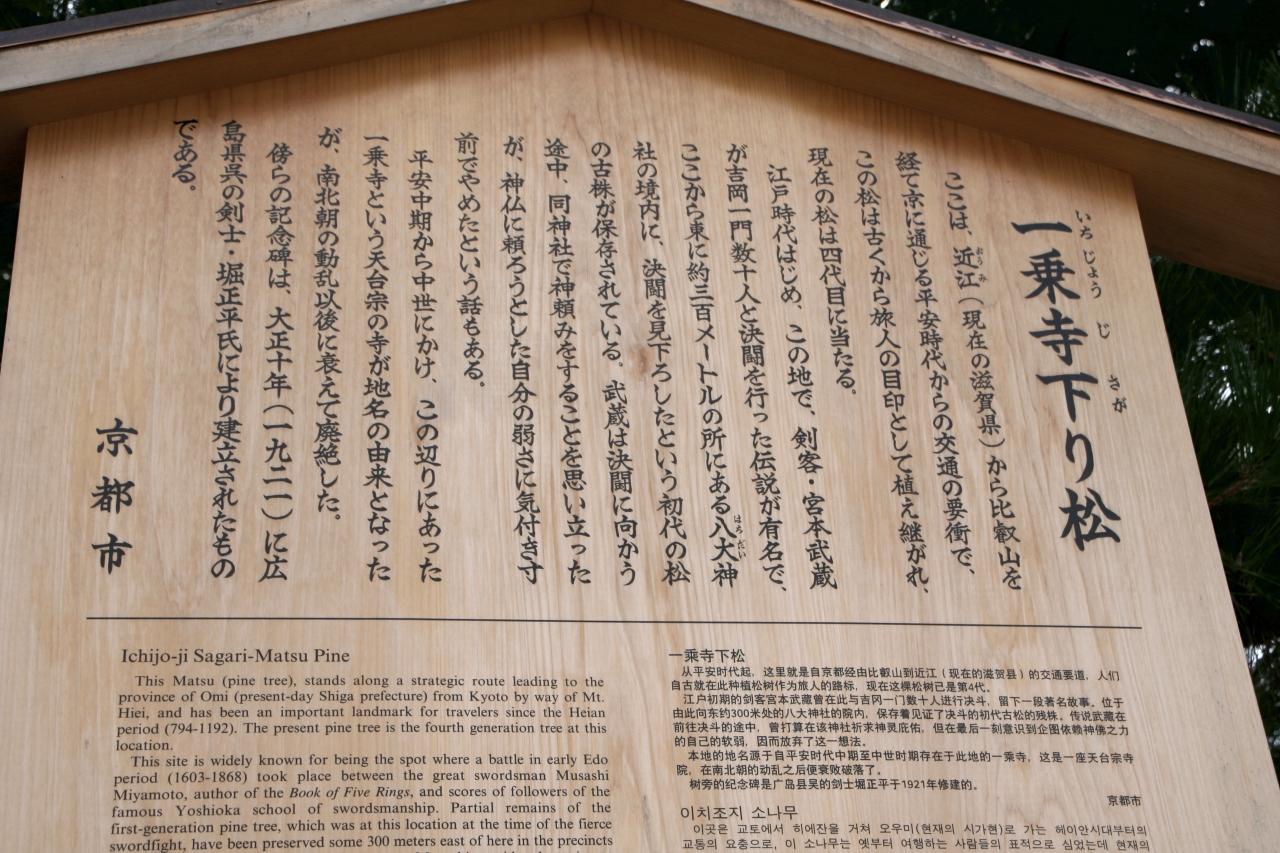 一乗寺下り松
ここは、近江（現在の滋賀県）から比叡山を
経て京に通じる平安時代からの交通の要衝で、
この松は古くから旅人の目印として植え継がれ、
現在の松は四代目に当たる。
江戸時代はじめ、この地で、剣客・宮本武蔵
が吉岡一門数十人と決闘を行った伝説が有名で、
ここから東に約三百メートルの所にある八大神
社の境内に、決闘を見下ろしたという初代の松
の古株が保存されている。武蔵は決闘に向かう
途中、同神社で神頼みをすることを思い立った
が、神仏に頼ろうとした自分の弱さに気付き寸
前でやめたという話もある。
平安中期から中世にかけ、この辺りにあった
一乗寺という天台宗の寺が地名の由来となった
が、南北朝の動乱以後に衰えて廃絶した。
傍らの記念碑は、大正十年（一九二一）に広
島県呉の剣士・堀正平氏により建立されたもの
である。
京都市
Ichijo-ji Sagari-Matsu Pine
This Matsu (pine tree), stands along a strategic route leading to the
province of Omi (present-day Shiga prefecture) from Kyoto by way of Mt.
Hiei, and has been an important landmark for travelers since the Heian
period (794-1192). The present pine tree is the fourth generation tree at this
location.
This site is widely known for being the spot where a battle in early Edo
period (1603-1868) took place between the great swordsman Musashi
Miyamoto, author of the Book of Five Rings, and scores of followers of the
famous Yoshioka school of swordsmanship. Partial remains of the
first-generation pine tree, which was at this location at the time of the fierce
swordfight, have been preserved some 300 meters east of here in the precincts
一乘寺下松
从平安时代起，这里就是自京都经由比叡山到近江（现在的滋贺县）的交通要道，人们
自古就在此种植松树作为旅人的路标，现在这棵松树已是第4代。
江户初期的剑客宫本武藏曾在此与吉冈一门数十人进行决斗，留下一段著名故事。位于
由此向东约300米处的八大神社的院内，保存着见证了决斗的初代古松的残株。传说武藏在
前往决斗的途中，曾打算在该神社祈求神灵庇佑，但在最后一刻意识到企图依赖神佛之力
的自己的软弱，因而放弃了这一想法。
本地的地名源于自平安时代中期至中世时期存在于此地的一乘寺，这是一座天台宗寺
院，在南北朝的动乱之后便衰败破落了。
树旁的纪念碑是广岛县吴的剑士堀正平于1921年修建的。
京都市
이치조지 소나무
이곳은 교토에서 히에잔을 거쳐 오우미(현재의 시가현)로 가는 헤이안시대부터의
교통의 요충으로, 이 소나무는 옛부터 여행하는 사람들의 표적으로 심었는데 현재의